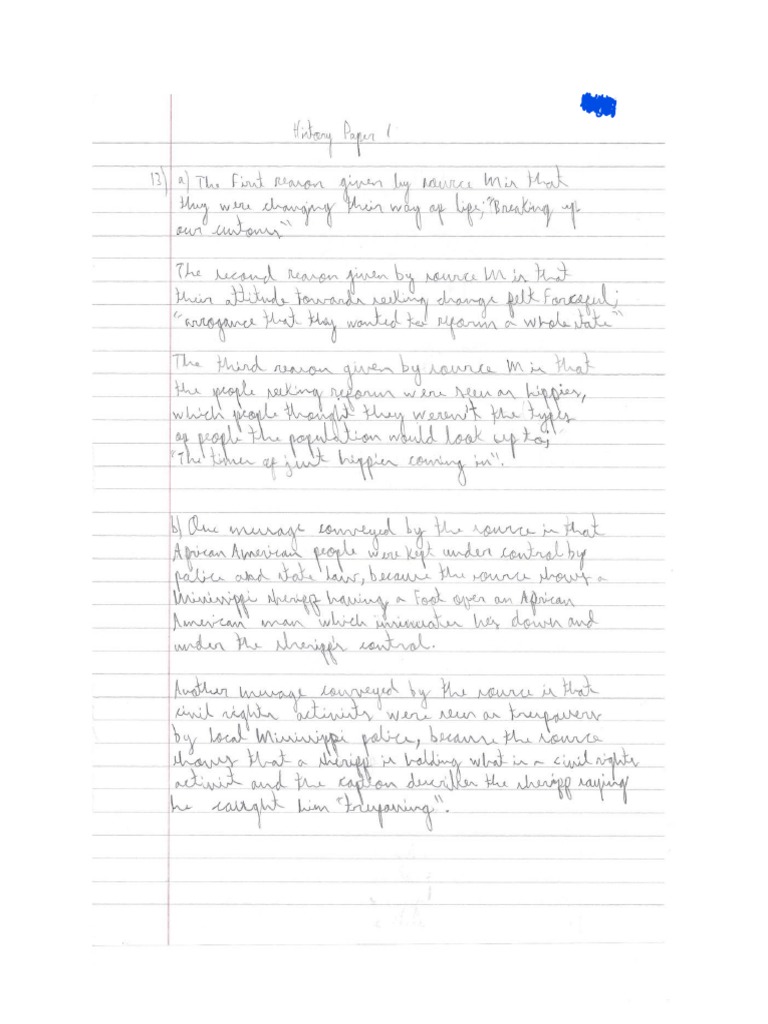 History Paper 1
13) a) The First reason given by source M is that
they were changing their way of life; "Breaking up
our customs"
The second reason given by source M is that
their attitude towards seeking change felt Forceful;
"arrogance that they wanted to reform a whole state"
The third reason given by source M is that
the people seeking reform were seen as hippies,
which people thought they weren't the types
of people the population would look up to;
"The times of just hippies coming in".
b) One message conveyed by the source is that
African American people were kept under control by
police and state law, because the source shows a
Mississippi sheriff having a Foot over an African
American man which insinuates hes down and
under the sheriff's control.
Another message conveyed by the source is that
civil rights activists were seen as trespassers
by local Mississippi police, because the source
shows that a sheriff is holding what is a civil rights
activist and the caption describes the sheriff saying
he caught him "trespassing".